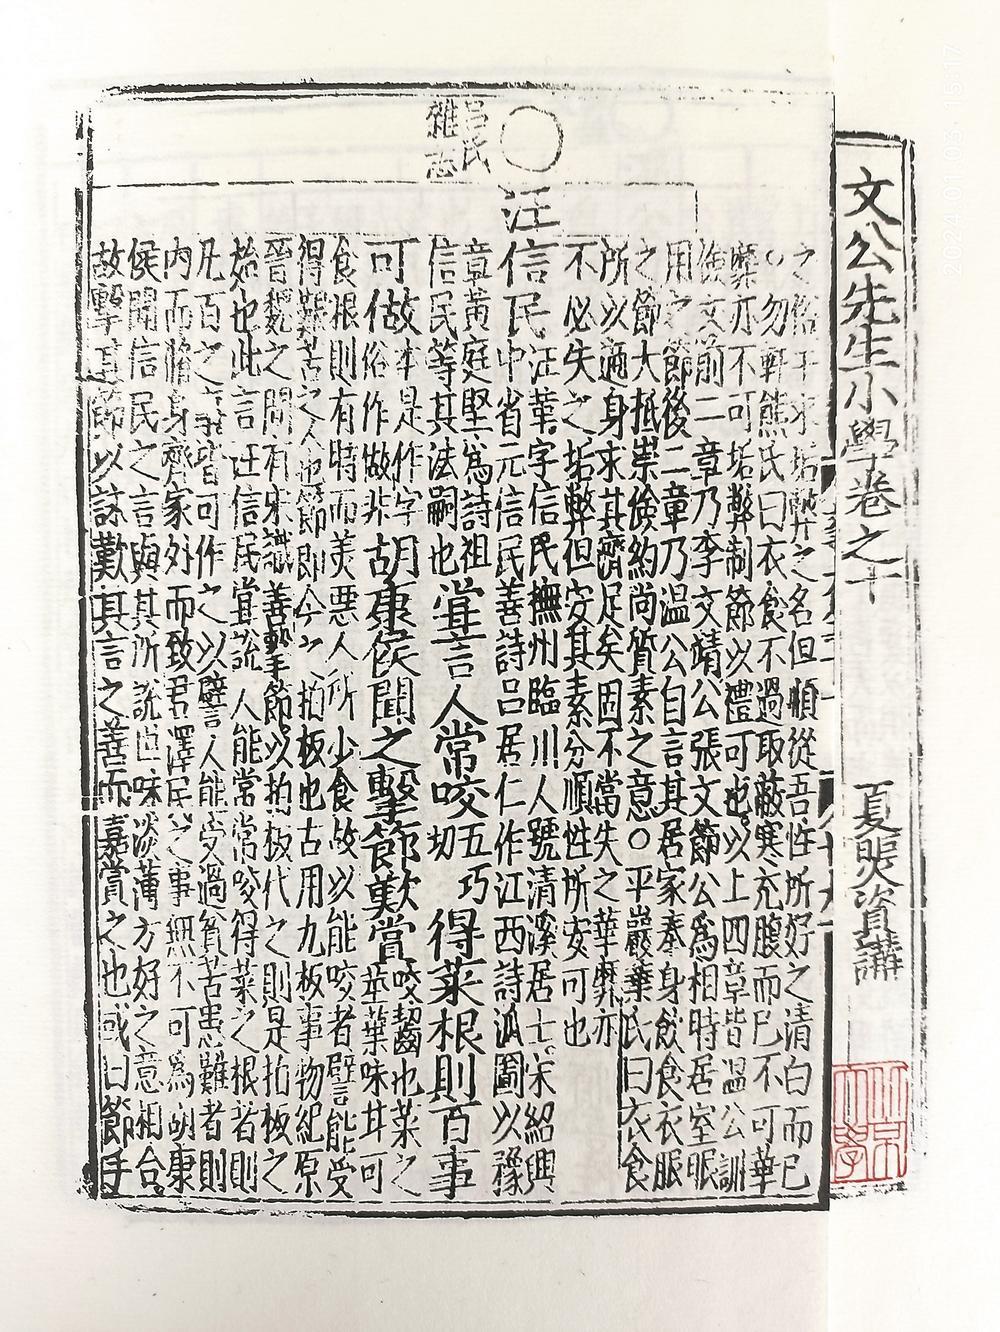 文公先生小學卷之十
夏煚資講
之俗干求垢弊之名但順從吾性所好之清白而已
○勿軒熊氏曰衣食不過取蔽寒充腹而已不可華
靡亦不可垢弊制節以禮可也以上四章皆溫公訓
儉文前二章乃李文靖公張文節公爲相時居室
用之節後二章乃溫公自言其居家奉身飲食衣服
之節大抵崇儉約尚質素之意○平巖葉氏曰衣食
所以適身求其濟足矣因不當失之華靡亦
不必失之垢弊但安其素分順性所安可也
○
汪信民
汪革字信民撫州臨川人號清溪居士宋紹興
中省元信民善詩呂居仁作江西詩派圖以豫
章黃庭堅爲詩祖
信民等其法嗣也
甞言人常咬
五巧
切
得菜根則百事
可做
本是作字
俗作做非
胡康侯聞之擊節歎賞
咬齧也菜之
莖葉味甘可
食根則有特而美惡人所少食故以能咬者譬能受
得艱苦之人也節即今之拍板也古用九板事物紀原
晉魏之間有宋識善擊節以拍板代之則是拍板之
始也此言汪信民甞說人能常常咬得菜之根者則
凡百之事皆可作之以譬言人能受過貧苦患難者則
內而脩身齊家外而致君澤民之事無不可爲胡康
侯聞信民之言與其所說世味淡薄方好之意相合
故擊其節以詠歎其言之善而嘉賞之也或曰節手
呂氏
雜志
2024 1 03 15 17